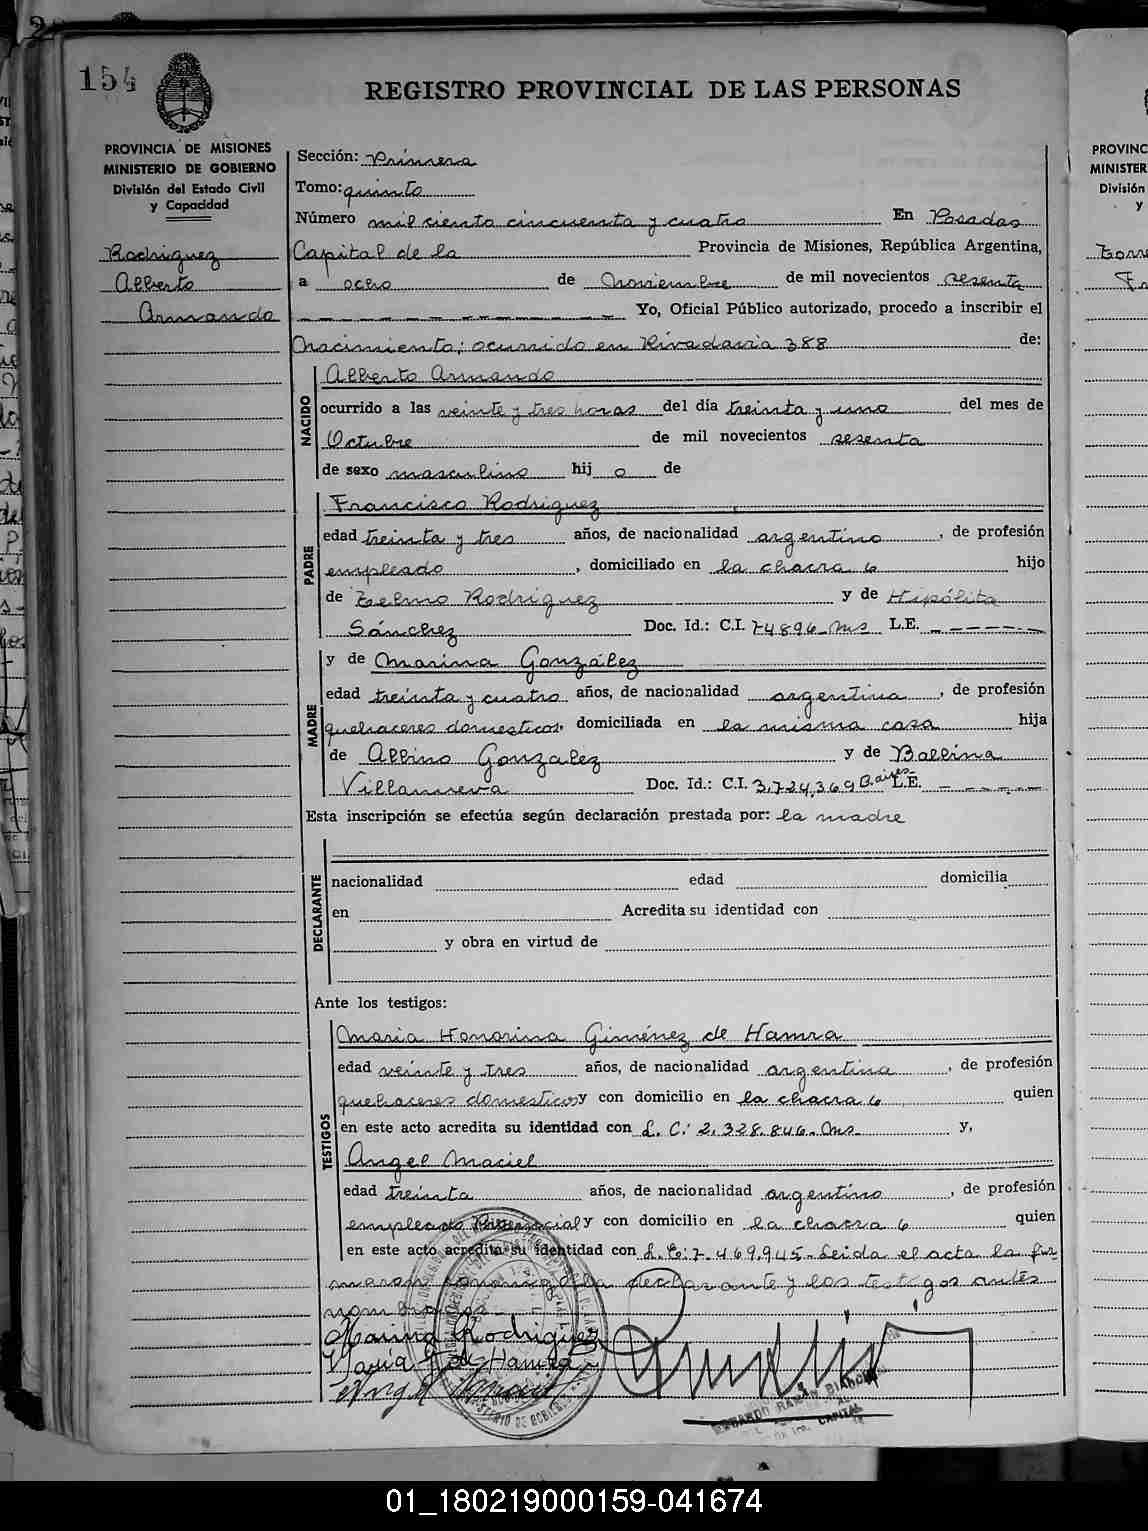 154
REGISTRO PROVINCIAL DE LAS PERSONAS
PROVINCIA DE MISIONES
MINISTERIO DE GOBIERNO
División del Estado Civil
y Capacidad
Rodriguez
Alberto
Armando
Sección: Primera
Tomo: quinto
Número mil ciento cincuenta y cuatro En Posadas
Capital de la Provincia de Misiones, República Argentina,
a ocho de Noviembre de mil novecientos sesenta
Yo, Oficial Público autorizado, procedo a inscribir el
Nacimiento; ocurrido en Rivadavia 388 de:
NACIDO
Alberto Armando
ocurrido a las veinte y tres horas del día treinta y uno del mes de
Octubre de mil novecientos sesenta
de sexo masculino hij o de
PADRE
Francisco Rodriguez
edad treinta y tres años, de nacionalidad argentino, de profesión
empleado, domiciliado en la chacra 6 hijo
de Telmo Rodriguez y de Hipólita
Sánchez Doc. Id.: C.I. 74896-Ms L.E. - - - - - -
MADRE
y de Marina González
edad treinta y cuatro años, de nacionalidad argentina, de profesión
quehaceres domesticos, domiciliada en la misma casa hija
de Albino Gonzalez y de Balbina
Villanueva Doc. Id.: C.I. 3,724,369 B.aires L.E. - - - - -
Esta inscripción se efectúa según declaración prestada por: la madre
DECLARANTE
nacionalidad edad domicilia
en Acredita su identidad con
y obra en virtud de
Ante los testigos:
TESTIGOS
Maria Honorina Giménez de Hamra
edad veinte y tres años, de nacionalidad argentina, de profesión
quehaceres domesticos y con domicilio en la chacra 6 quien
en este acto acredita su identidad con L. C: 2,328.846-Ms- y,
Angel Maciel
edad treinta años, de nacionalidad argentino, de profesión
empleado Provincial y con domicilio en la chacra 6 quien
en este acto acredita su identidad con L. E: 7.469,945- Leida el acta la fir
maron conmigo la declarante y los testigos antes
nombrados-
Marina Rodriguez
Maria G de Hamra
Angel Maciel
CAPITAL
PROVINC
MINISTER
División
y
01_180219000159-041674